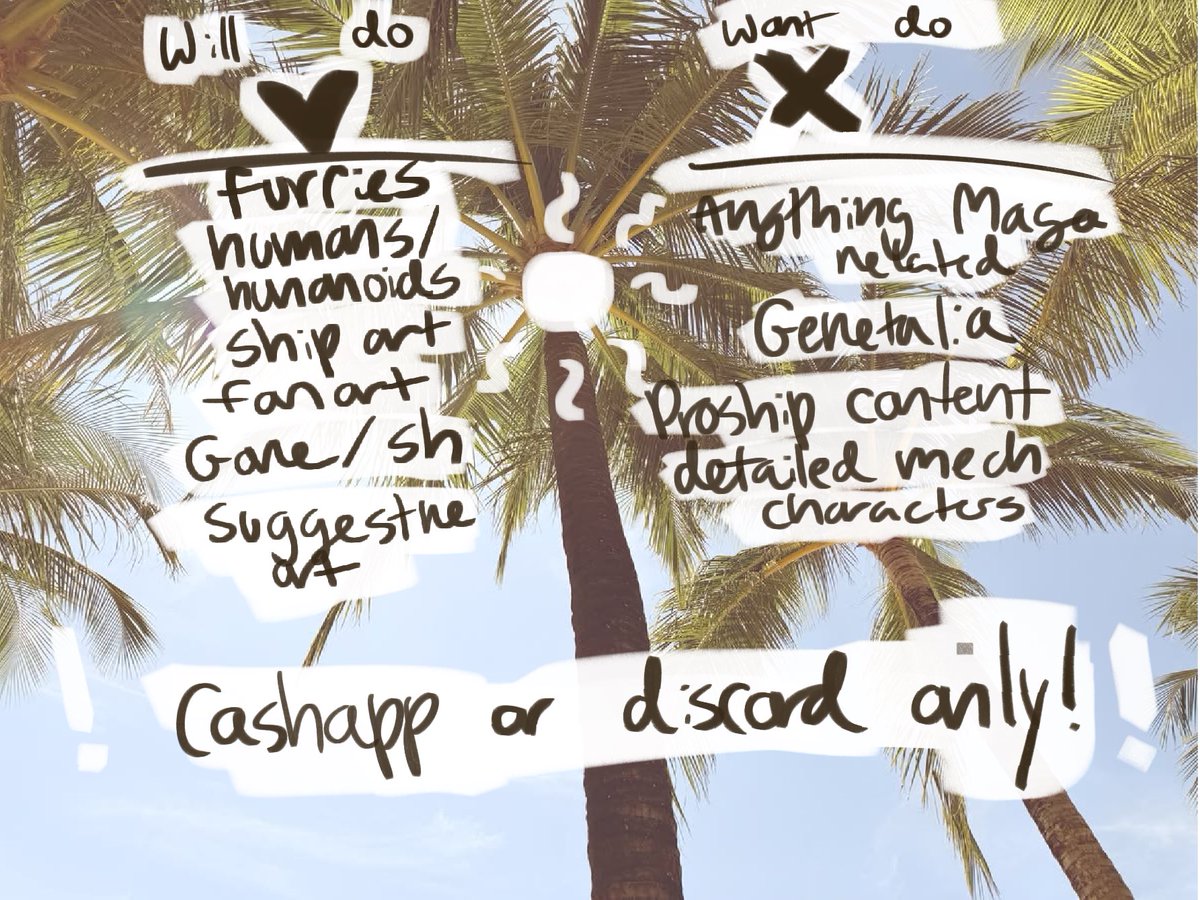 Will do
furries
humans/
humanoids
ship art
fanart
Gore/sh
suggestive
art
Want do
Anything Maga
related
Genetalia
Proship content
detailed mech
characters
Cashapp or discord only!